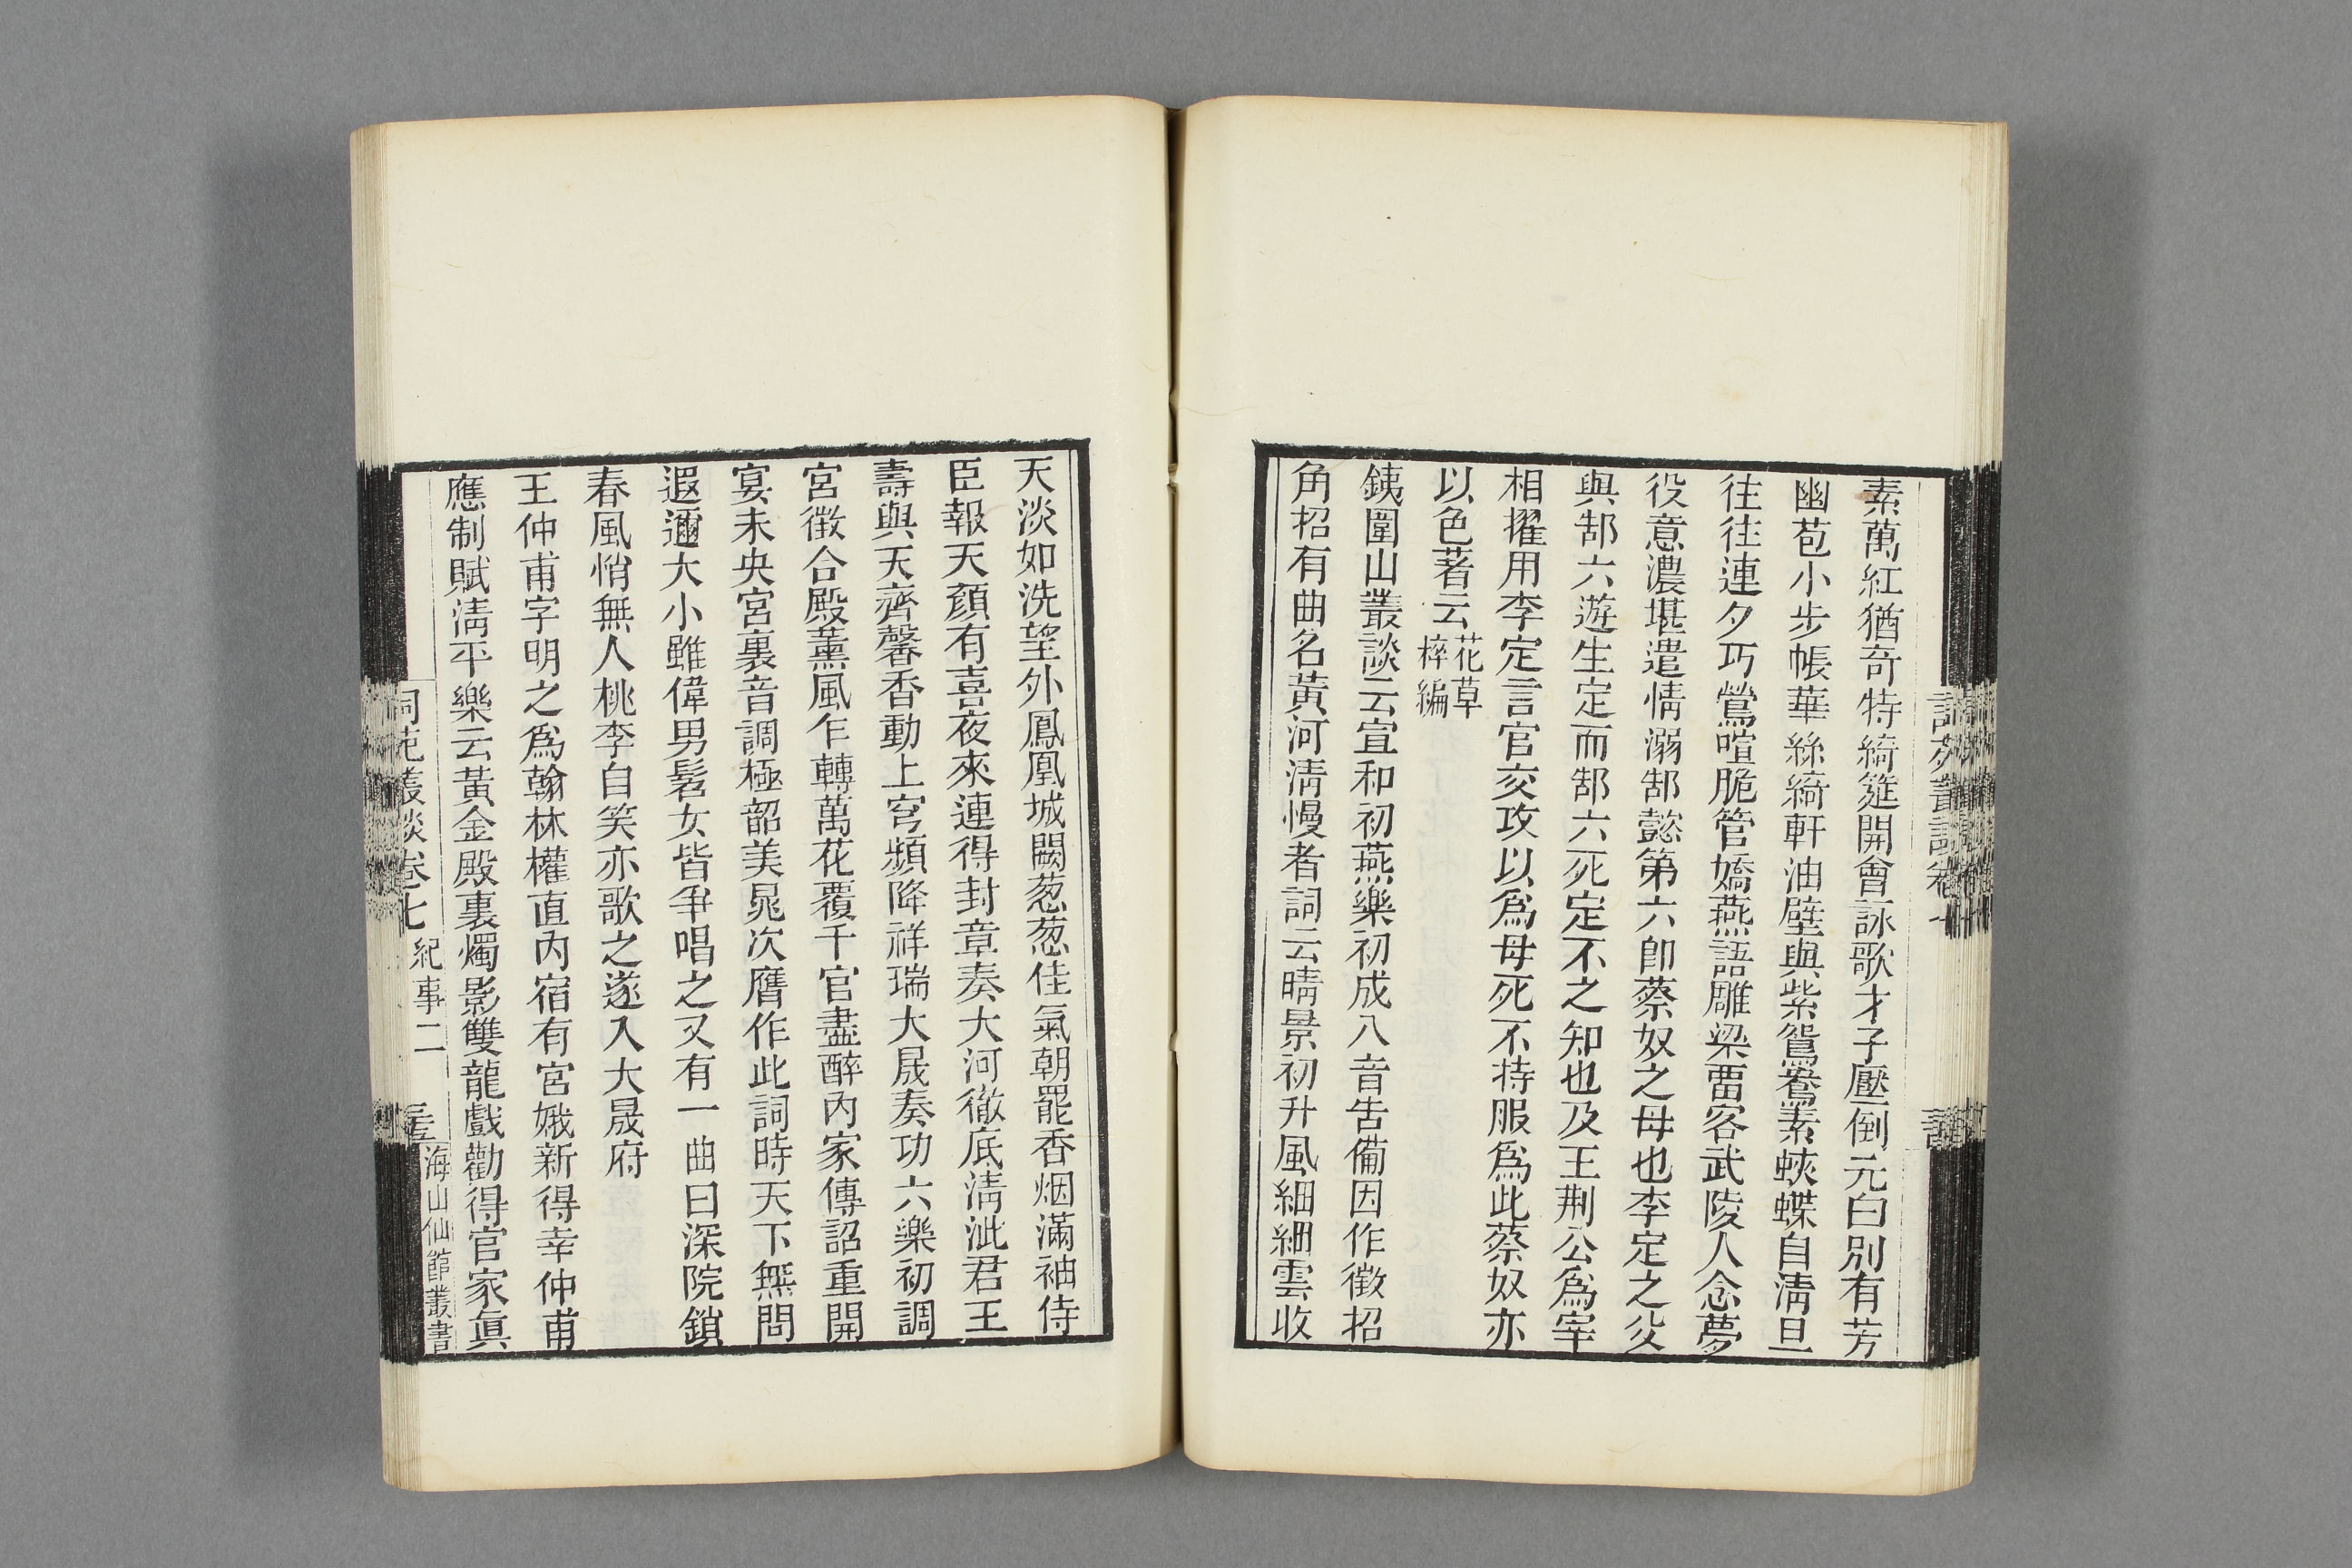 素萬紅猶奇特綺筵開會詠歌才子壓倒元白別有芳
幽苞小步帳華絲綺軒油壁與紫鴛鴦素蛺蝶自淸旦
往往連夕巧鶯喧脆管嬌燕語雕梁畱客武陵人念夢
役意濃堪遣情溺郜懿第六卽蔡奴之母也李定之父
與郜六遊生定而郜六死定不之知也及王荆公爲宰
相擢用李定言官交攻以爲母死不持服爲此蔡奴亦
以色著云花草
粹編
銕圍山叢談云宣和初燕樂初成八音告備因作徵招
角招有曲名黃河淸慢者詞云晴景初升風細細雲收
天淡如洗望外鳳凰城闕葱葱佳氣朝罷香烟滿袖侍
臣報天顏有喜夜來連得封章奏大河徹底淸泚君王
壽與天齊馨香動上穹頻降祥瑞大晟奏功六樂初調
宮徵合殿薰風乍轉萬花覆千官盡醉內家傳詔重開
宴未央宮裏音調極韶美晁次膺作此詞時天下無問
遐邇大小雖偉男髫女皆爭唱之又有一曲曰深院鎖
春風悄無人桃李自笑亦歌之遂入大晟府
王仲甫字明之爲翰林權直內宿有宮娥新得幸仲甫
應制賦淸平樂云黃金殿裏燭影雙龍戲勸得官家眞
詞苑叢談卷七 紀事二
海山仙館叢書